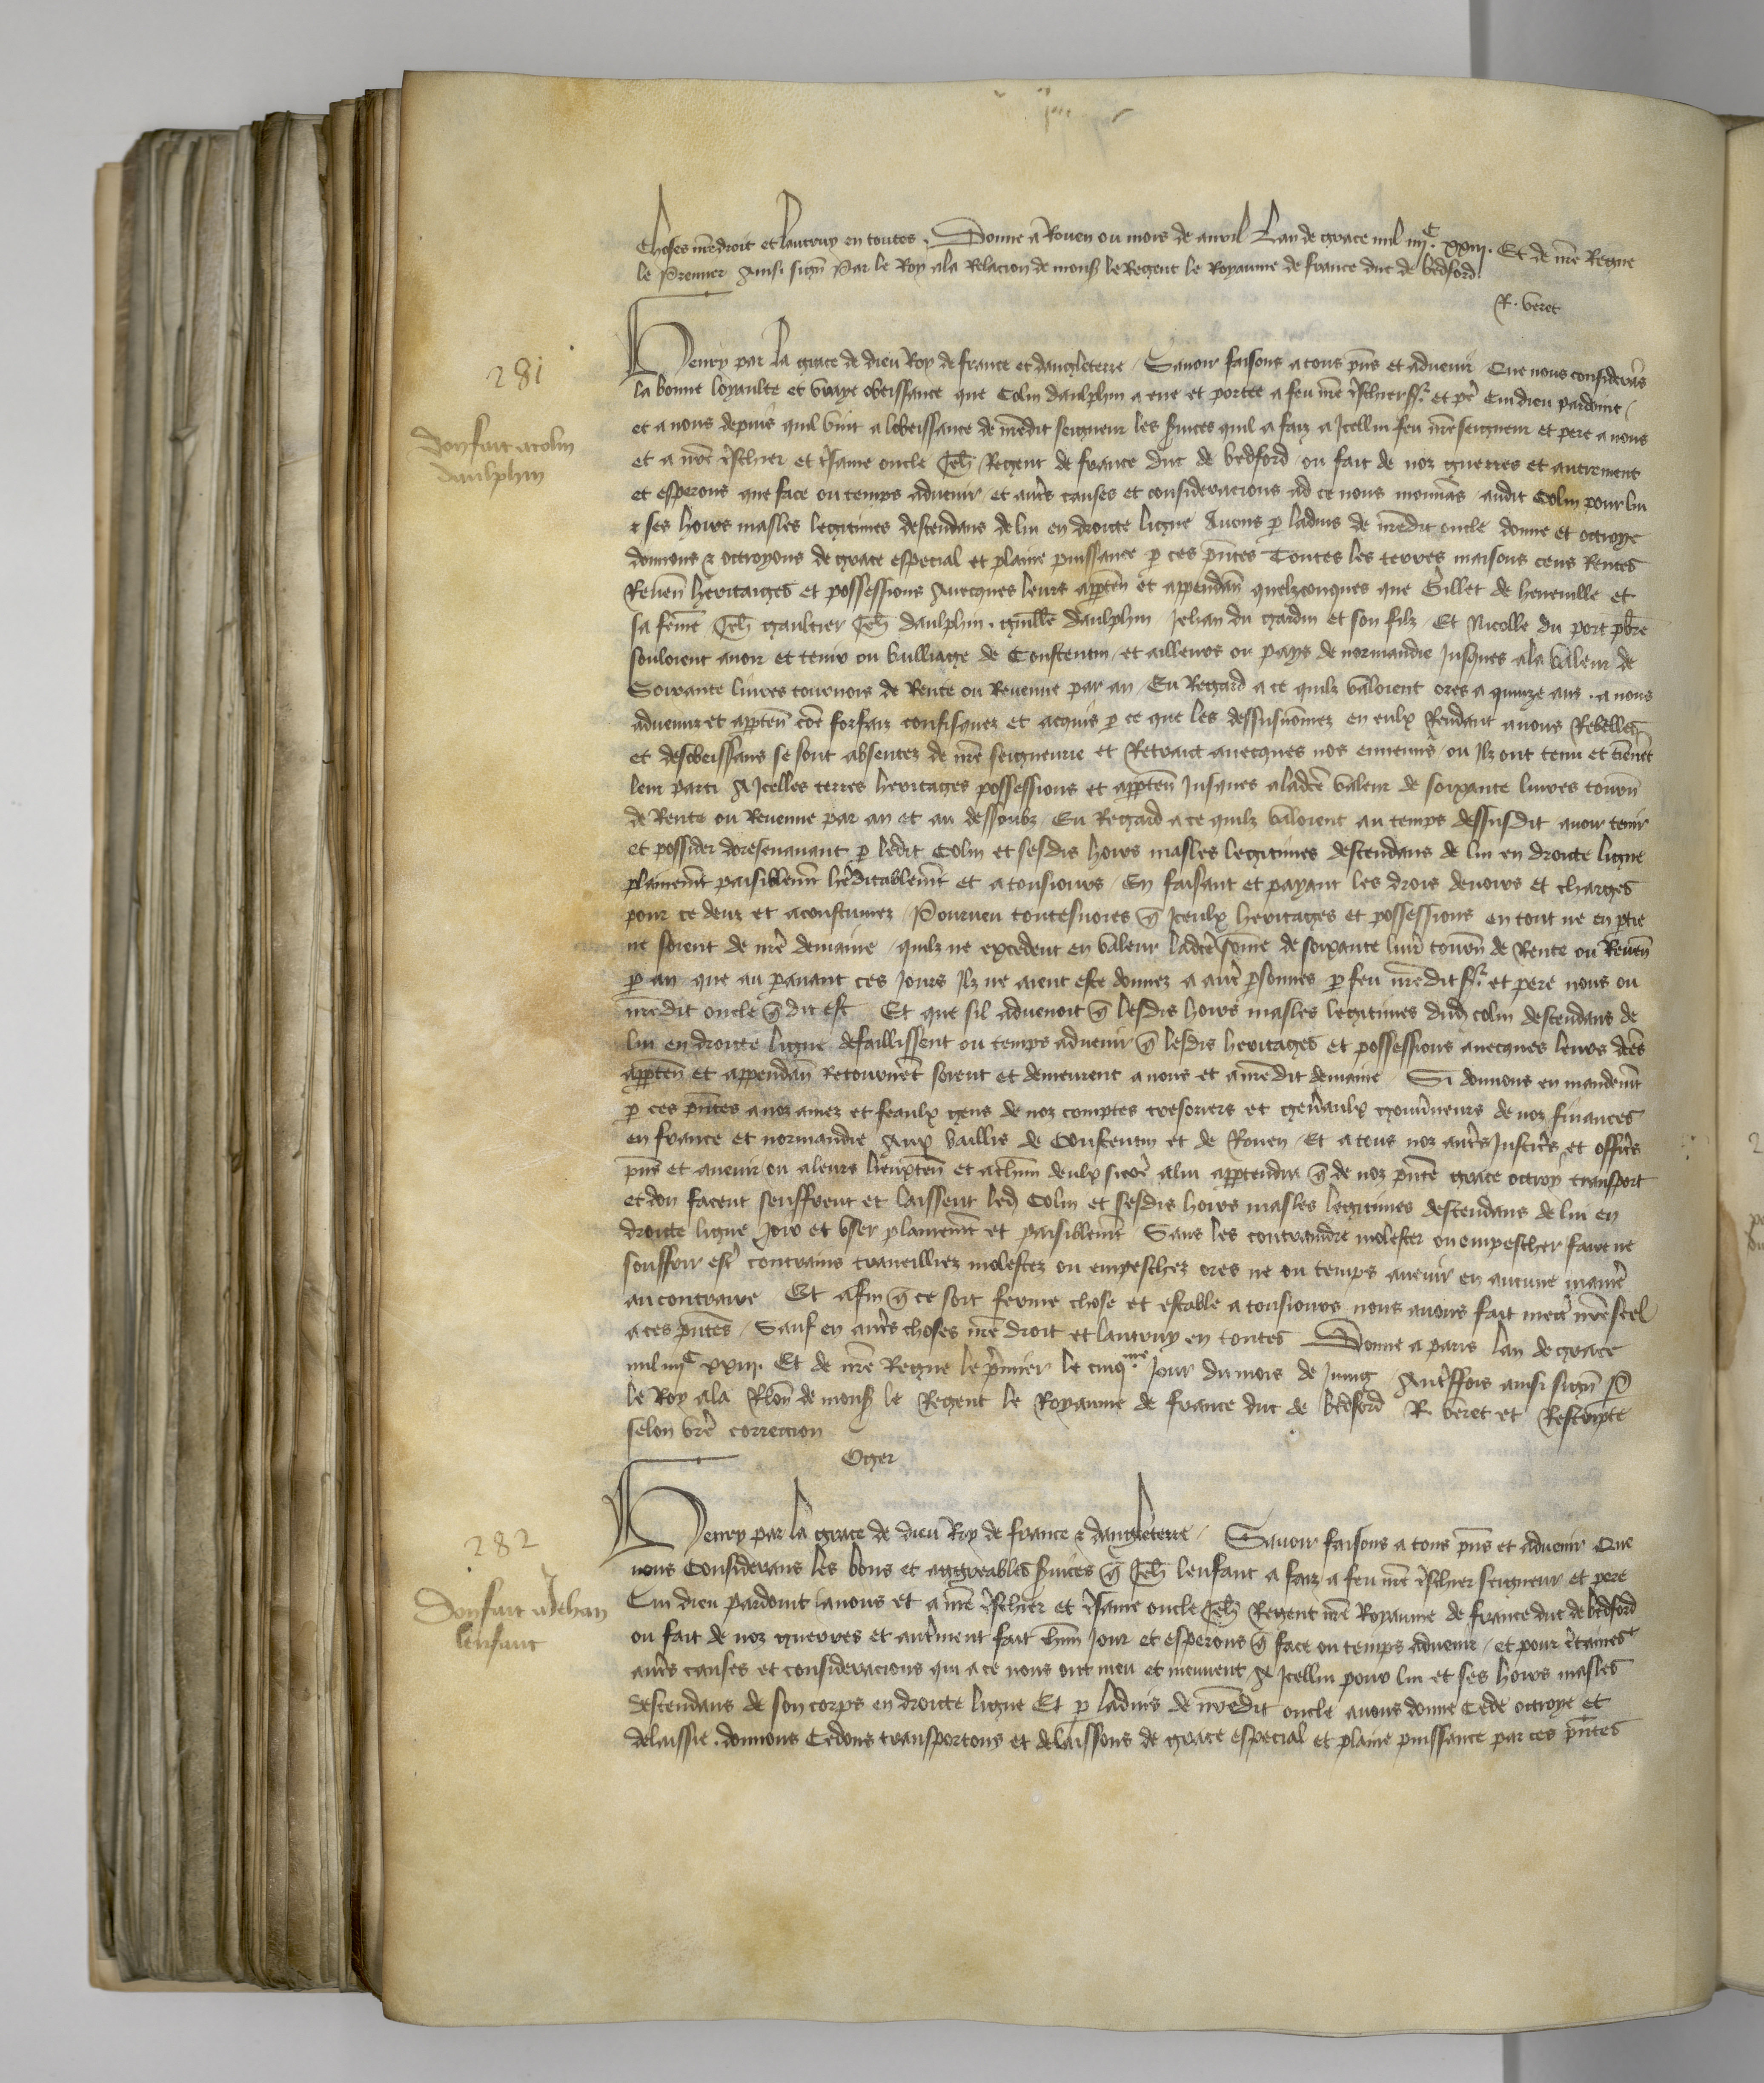 choses nr̃e droit et lautruy en toutes. Donne a Rouen ou mois de auril Lan de grace mil iiijC. xxiij. Et de nr̃e Regne
le Premier Ainsi sign̄ Par le Roy ala Relacion de mons̄ le Regent le Royaume de france duc de bedford.
R. veret
281
Don fait a colin
daulphin
Henry par la grace de dieu Roy de france et dangleterre / Sauoir faisons a tous pn̄s et aduenir Que nous considerās
la bonne loyaulte et vraye obeissance que Colin daulphin a eue et portee a feu nr̃e tʳschier sʳ. et pe᷑ Cui dieu pardoint /
et a nous depuis quil vint a lobeissance de nr̃edit seigneur les s̄uices quil a faiz a Icellui feu nr̃e seigneur et pere a nous
et a nr̃e tʳschier et tʳsame oncle Jeh̄ Regent de france duc de bedford ou fait de noz guerres et autrement
et esperons que face ou temps aduenir / et aut̃s causes et consideracions ad ce nous mouuās / audit Colin pour lui
& ses hoirs masles legitimes descendans de lui en droicte ligne Auons p̱ laduis de nr̃edit oncle donne et octroye
donnons & octroyons de grace especial et plaine puissance p̱ ces pn̄tes Toutes les terres maisons cens Rentes
Reuen̄ heritaiges et possessions Auecques leurs apparten̄ et appendan̄ quelzconques que Gillet de heneuille et
sa fem̄e Jeh̄ gaultier Jeh̄ daulphin. guill̄e daulphin / Jehan du gardin et son filz / Et Nicolle du port pb̄re
souloient auoir et tenir ou bailliage de Constentin / et ailleurs ou pays de normandie Jusques ala valeur de
Soixante liures tournois de Rente ou Reuenue par an / Eu Regard a ce quilz valoient ores a quinze ans. a nous
aduenuz et apparten̄ cōe forfaiz confisquez et acquis p̱ ce que les dessusnōmez en eulx Rendant a nous Rebelles
et desobeissans se sont absentez de nr̃e seigneurie et Retraict auecques nos ennemis / ou Ilz ont tenu et tienēt
leur parti A Icelles terres heritages possessions et apparten̄ Jusques aladc̄e valeur de soixante liures tourn̄
de Rente ou Reuenue par an et au dessoubz / Eu Regard a ce quilz valoient au temps dessusdit auoir tenir
et possider doresenauant p̱ ledit Colin et sesdis hoirs masles legitimes descendans de lui en droicte ligne
plainem̄t paisiblem̄t he᷑ditablem̄t et a tousiours / En faisant et payant les drois deuoirs et charges
pour ce deuz et acoustumez / Pourueu toutesuoies q̄ Iceulx heritages et possessions en tout ne en p̱tie
ne soient de nr̃e demaine / quilz ne excedent en valeur ladc̄e som̄e de soixante liur̄ tourn̄ de Rente ou Reuen̄
p̱ an / que au p̱auant ces Jours Ilz ne aient este donnez a aut̃ p̱sonnes p̱ feu nr̃edit sʳ. et pere nous ou
nr̃edit oncle q̄ dit est Et que sil aduenoit q̄ lesdis hoirs masles legitimes dud̄ colin descendans de
lui en droicte ligne defaillissent ou temps aduenir q̄ lesdis heritages et possessions auecques leurs dc̄es
apparten̄ et appendan̄ Retournēt soient et demeurent a nous et a nr̃edit demaine / Si donnons en mandem̄t
p̱ ces pn̄tes a noz amez et feaulx gens de noz comptes tresoriers et gen̄aulx gouu̅neurs de noz finances
en france et normandie Aux Baillis de Constentin et de Rouen / Et a tous noz aut̃s Justic̃s et offic̃s
pn̄s et auenir ou a leurs lieuxten̄ et a ch̄un deulx si cōe a lui appartendra q̄ de noz pn̄te grace octroy transport
et don facent seuffrent et laissent led̄ Colin et sesdis hoirs masles legitimes descendans de lui en
droicte ligne Joir et vser plainem̄t et paisiblem̄t Sans les contraindre molester ou empescher faire ne
souffrir est̃ contrains traueilliez molestez ou empeschez ores ne ou temps auenir en aucune manie᷑
au contraire Et afin q̄ ce soit ferme chose et estable a tousiours nous auons fait mect̃ nr̃e seel
a ces pn̄tes / Sauf en aut̃s choses nr̃e droit et lautruy en toutes Donne a paris lan de grace
mil iiijC xxiij. Et de nr̃e Regne le p̄mier le cinqme Jour du mois de Juing Aut̃ffois ainsi sign̄ P̱
le Roy ala Rlōn de mons̄ le Regent le Royaume de france duc de bedford R. veret et Rescripte
selon vr̃e correcion
Oger
282
Don fait a Jehan
lenfant
Henry par la grace de dieu Roy de france & dangleterre / Sauoir faisons a tous pn̄s et aduenir Que
nous Considerans les bons et aggreables s̄uices q̄ Jeh̄ lenfant a faiz a feu nr̃e tʳschier seigneur et pere
Cui dieu pardoint / a nous et a nr̃e tʳschier et tʳsame oncle Jeh̄ Regent nr̃e Royaume de france duc de bedford
ou fait de noz guerres et aut̃ment fait ch̄un Jour et esperons q̄ face ou temps aduenir / et pour c̄taines
aut̃s causes et consideracions qui a ce nous ont meu et meuuent A Icellui pour lui et ses hoirs masles
descendans de son corps en droicte ligne Et p̱ laduis de nr̃edit oncle auons donne Cede octroye et
delaissie. donnons Cedons transportons et delaissons de grace especial et plaine puissance par ces pn̄tes